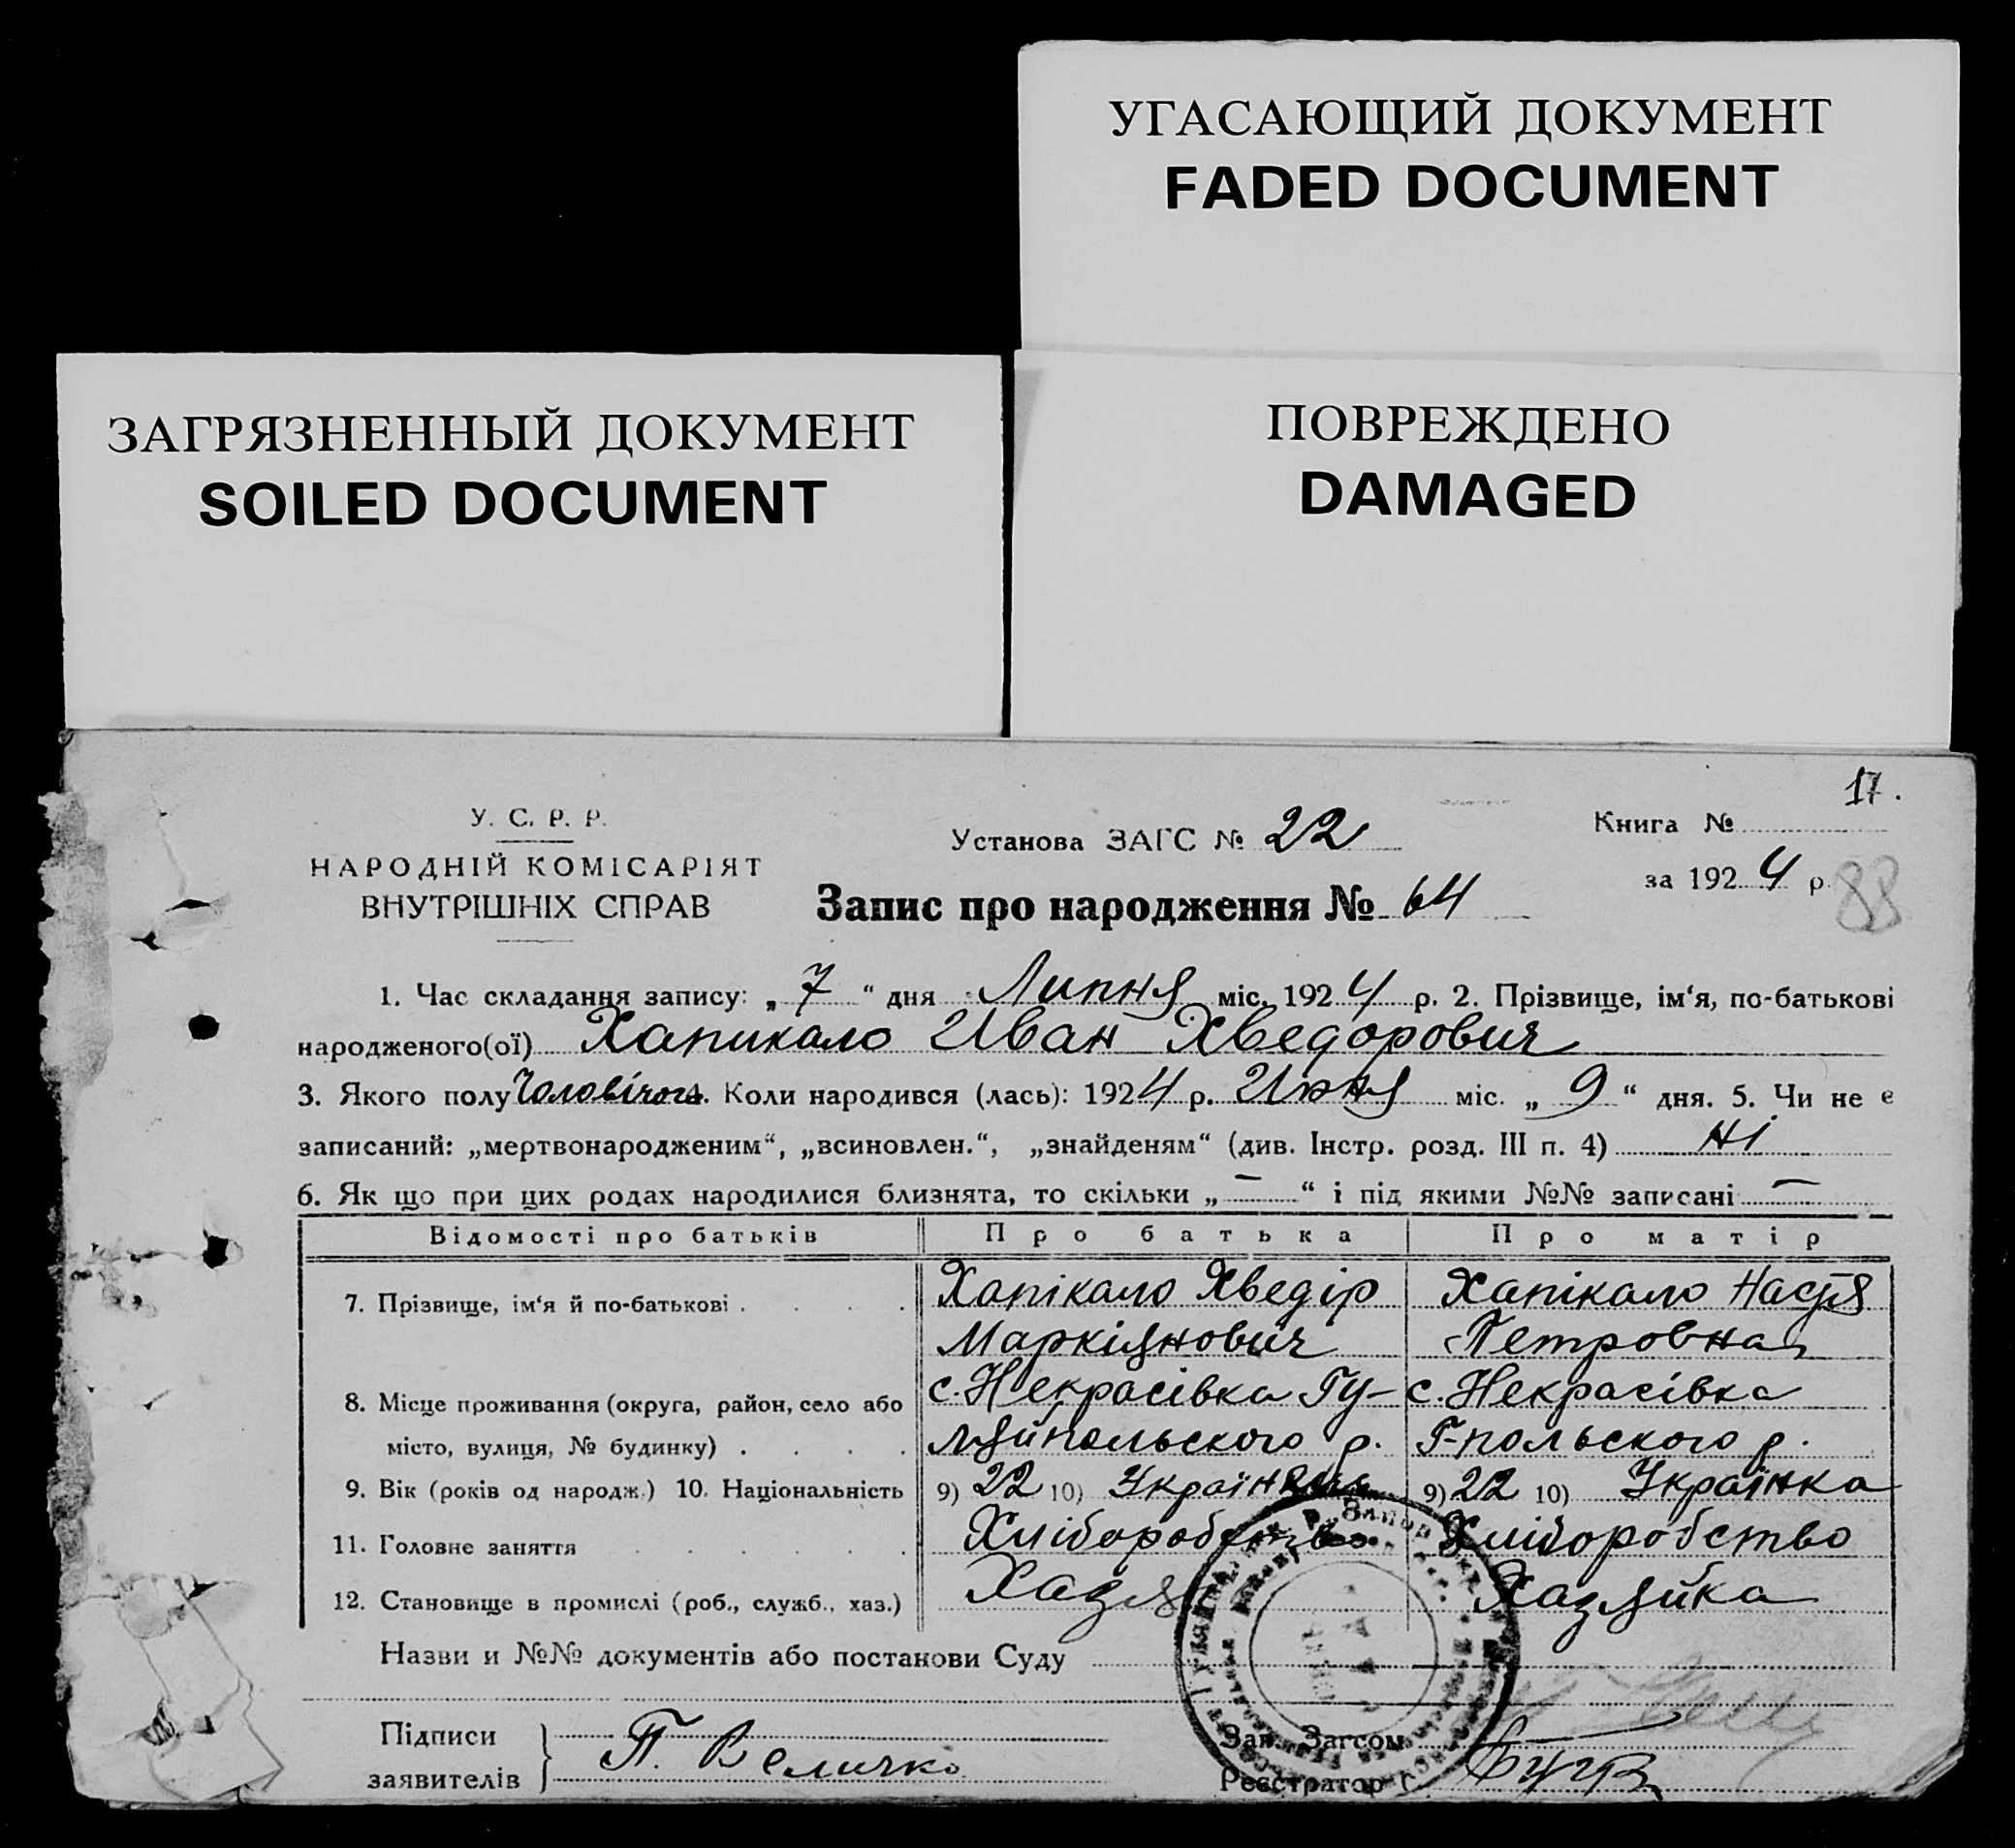 УГАСАЮЩИЙ ДОКУМЕНТ
FADED DOCUMENT
ЗАГРЯЗНЕННЫЙ ДОКУМЕНТ
SOILED DOCUMENT
ПОВРЕЖДЕНО
DAMAGED
17.
У. С. Р. Р.
НАРОДНІЙ КОМІСАРІЯТ
ВНУТРІШНІХ СПРАВ
Установа ЗАГС № 22
Книга №
за 1924 р.
88
Запис про народження № 64
1. Час складання запису: „7“ дня Липня міс. 1924 р. 2. Прізвище, ім‘я, по-батькові
народженого(ої) Хапикало Иван Хведорович
3. Якого полу Чоловічого. Коли народився (лась): 1924 р. Июня міс. „9“ дня. 5. Чи не є
записаний: „мертвонародженим“, „всиновлен.“, „знайденям“ (див. Інстр. розд. III п. 4) Ні
6. Як що при цих родах народилися близнята, то скільки „—“ і під якими №№ записані —
Відомості про батьків Про батька Про матір
7. Прізвище, ім‘я й по-батькові . . . . Хапікало Хведір Хапікало Настя
Маркіянович Петровна
8. Місце проживання (округа, район, село або с. Некрасівка Гу- с. Некрасівка
місто, вулиця, № будинку) . . . . ляйпольского р. Г-польского р.
9. Вік (років од народж.) 10. Національність 9) 22 10) Українець 9) 22 10) Українка
11. Головне заняття . . . . . . Хліборобство Хліборобство
12. Становище в промислі (роб., служб., хаз.) Хазяйка
Назви и №№ документів або постанови Суду
Підписи
заявителів
П. Величко
Зав. Загсом
Реєстратор